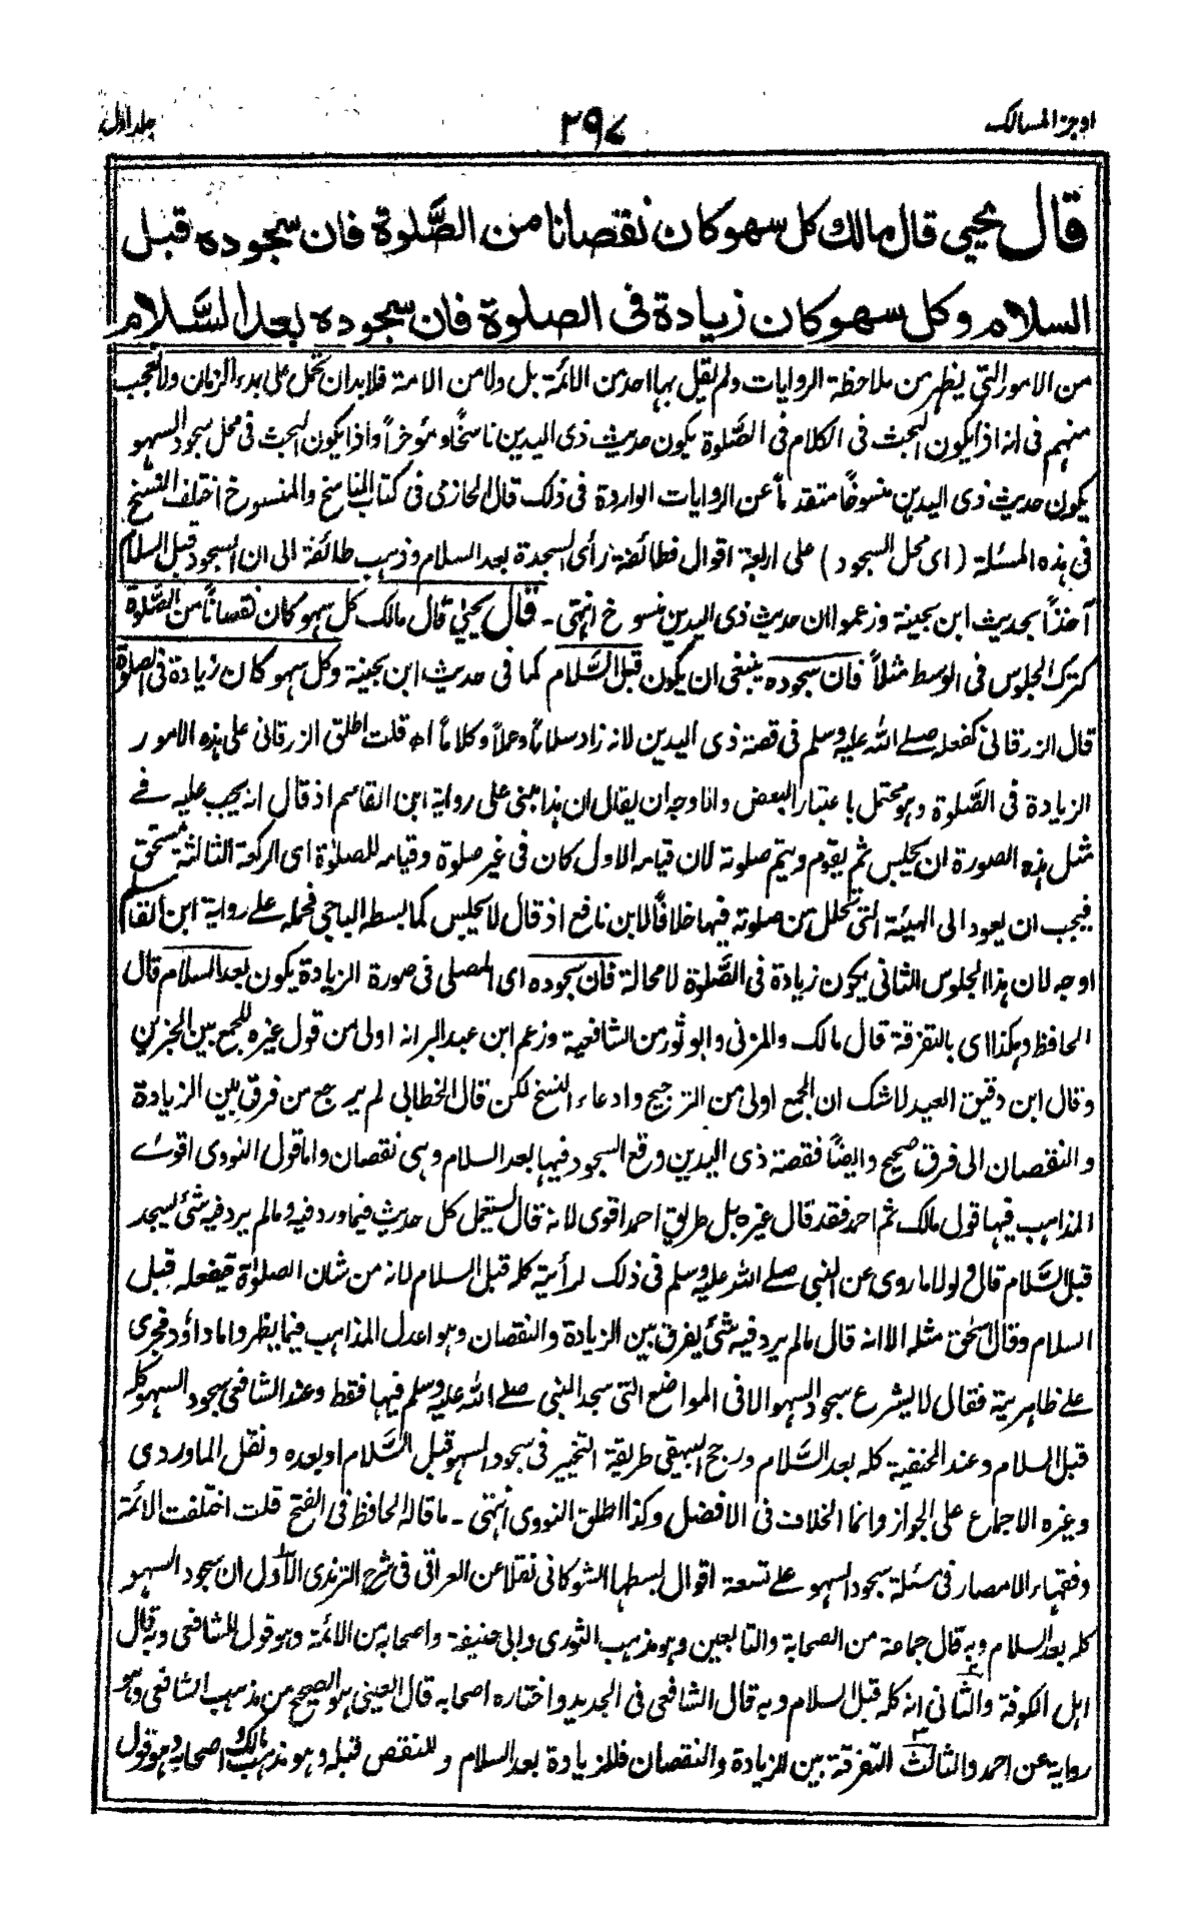 اوجز المسالك
٢٩٧
جلد اول
قال يحيى قال مالك كل سهو كان نقصانا من الصَّلوة فان سجوده قبل
السلام وكل سهو كان زيادة فى الصلوة فان سجوده بعد السَّلام
من الامور التى يظهر من ملاحظة الروايات ولم يقل بها احد من الائمة بل ولا من الامة فلا بد ان تحمل على بدء الزمان ولا تعجب
منهم فى انه اذا يكون البحث فى الكلام فى الصَّلوة يكون حديث ذى اليدين ناسخًا ومؤخراً واذا يكون البحث فى محل سجود السهو
يكون حديث ذى اليدين منسوخًا متقدماً عن الروايات الواردة فى ذلك قال الحازمى فى كتاب الناسخ والمنسوخ اختلف النسخ
فى هذه المسئلة (اى محل السجود) على اربعة اقوال فطائفة رأى السجدة بعد السلام وذهب طائفة الى ان السجود قبل السلام
آخذًا بحديث ابن بحينة وزعموا ان حديث ذى اليدين منسوخ انتهى ـ قال يحيى قال مالك كل سهو كان نقصاناً من الصَّلوة
كترك الجلوس فى الوسط مثلاً فان سجوده ينبغى ان يكون قبل السَّلام كما فى حديث ابن بحينة وكل سهو كان زيادة فى الصلوة
قال الزرقانى كفعله صلے الله عليه وسلم فى قصة ذى اليدين لانه زاد سلاماً وعملاً وكلاماً اھ قلت اطلق الزرقانى على هذه الامور
الزيادة فى الصَّلوة وهو محتمل باعتبار البعض وانا وجه ان يقال ان هذا مبنى على رواية ابن القاسم اذ قال انه يجب عليه فے
مثل هذه الصورة ان يجلس ثم يقوم ويتم صلوته لان قيامه الاول كان فى غير صلوة وقيامه للصلوٰة اى الركعة الثالثة مستحق
فيجب ان يعود الى الهيئة التى تحلل من صلوته فيها خلافاً لابن نافع اذ قال لا يجلس كما بسطه الباجى فحمله علے رواية ابن القاسم
اوجه لان هذا الجلوس الثانى يكون زيادة فى الصَّلوة لا محالة فان سجوده اى المصلى فى صورة الزيادة يكون بعد السلام قال
الحافظ وهكذا اى بالتفرقة قال مالك والمزنى وابو ثور من الشافعية وزعم ابن عبد البر انه اولى من قول غيره للجمع بين الخبرين
وقال ابن دقيق العيد لا شك ان الجمع اولى من الترجيح وادعاء النسخ لكن قال الخطابى لم يرجح من فرق بين الزيادة
والنقصان الى فرق صحيح وايضًا فقصة ذى اليدين وقع السجود فيها بعد السلام وهى نقصان واما قول النووى اقوے
المذاهب فيها قول مالك ثم احمد فقد قال غيره بل طريق احمد اقوى لانه قال يستعمل كل حديث فيما ورد فيه وما لم يرد فيه شئ يسجد
قبل السَّلام قال ولولا ما روى عن النبى صلے الله عليه وسلم فى ذلك لرأيته كله قبل السلام لانه من شان الصلوٰة فيفعله قبل
السلام وقال اسحٰق مثله الا انه قال ما لم يرد فيه شئ يفرق بين الزيادة والنقصان وهو اعدل المذاهب فيما يظهر واما داؤد فجرى
علے ظاهريته فقال لا يشرع سجود السهو الا فى المواضع التى سجد النبى صلے الله عليه وسلم فيها فقط وعند الشافعى سجود السهو كله
قبل السلام وعند الحنفية كله بعد السَّلام ورجح البيهقى طريقة التخيير فى سجود السهو قبل السَّلام او بعده ونقل الماوردى
وغيره الاجماع على الجواز وانما الخلاف فى الافضل وكذا اطلق النووى انتهى ـ ما قاله الحافظ فى الفتح قلت اختلفت الائمة
وفقهاء الامصار فى مسئلة سجود السهو علے تسعة اقوال بسطها الشوكانى نقلا عن العراقى فى شرح الترمذى الأول ان سجود السهو
كله بعد السلام وبه قال جماعة من الصحابة والتابعين وهو مذهب الثورى وابى حنيفة واصحابه من الائمة وهو قول للشافعى وبه قال
اهل الكوفة والثانى انه كله قبل السلام وبه قال الشافعى فى الجديد واختاره اصحابه قال العينى هو الصحيح من مذهب الشافعى وهو
رواية عن احمد والثالث التفرقة بين الزيادة والنقصان فللزيادة بعد السلام وللنقص قبله وهو مذهب مالك واصحابه وهو قول